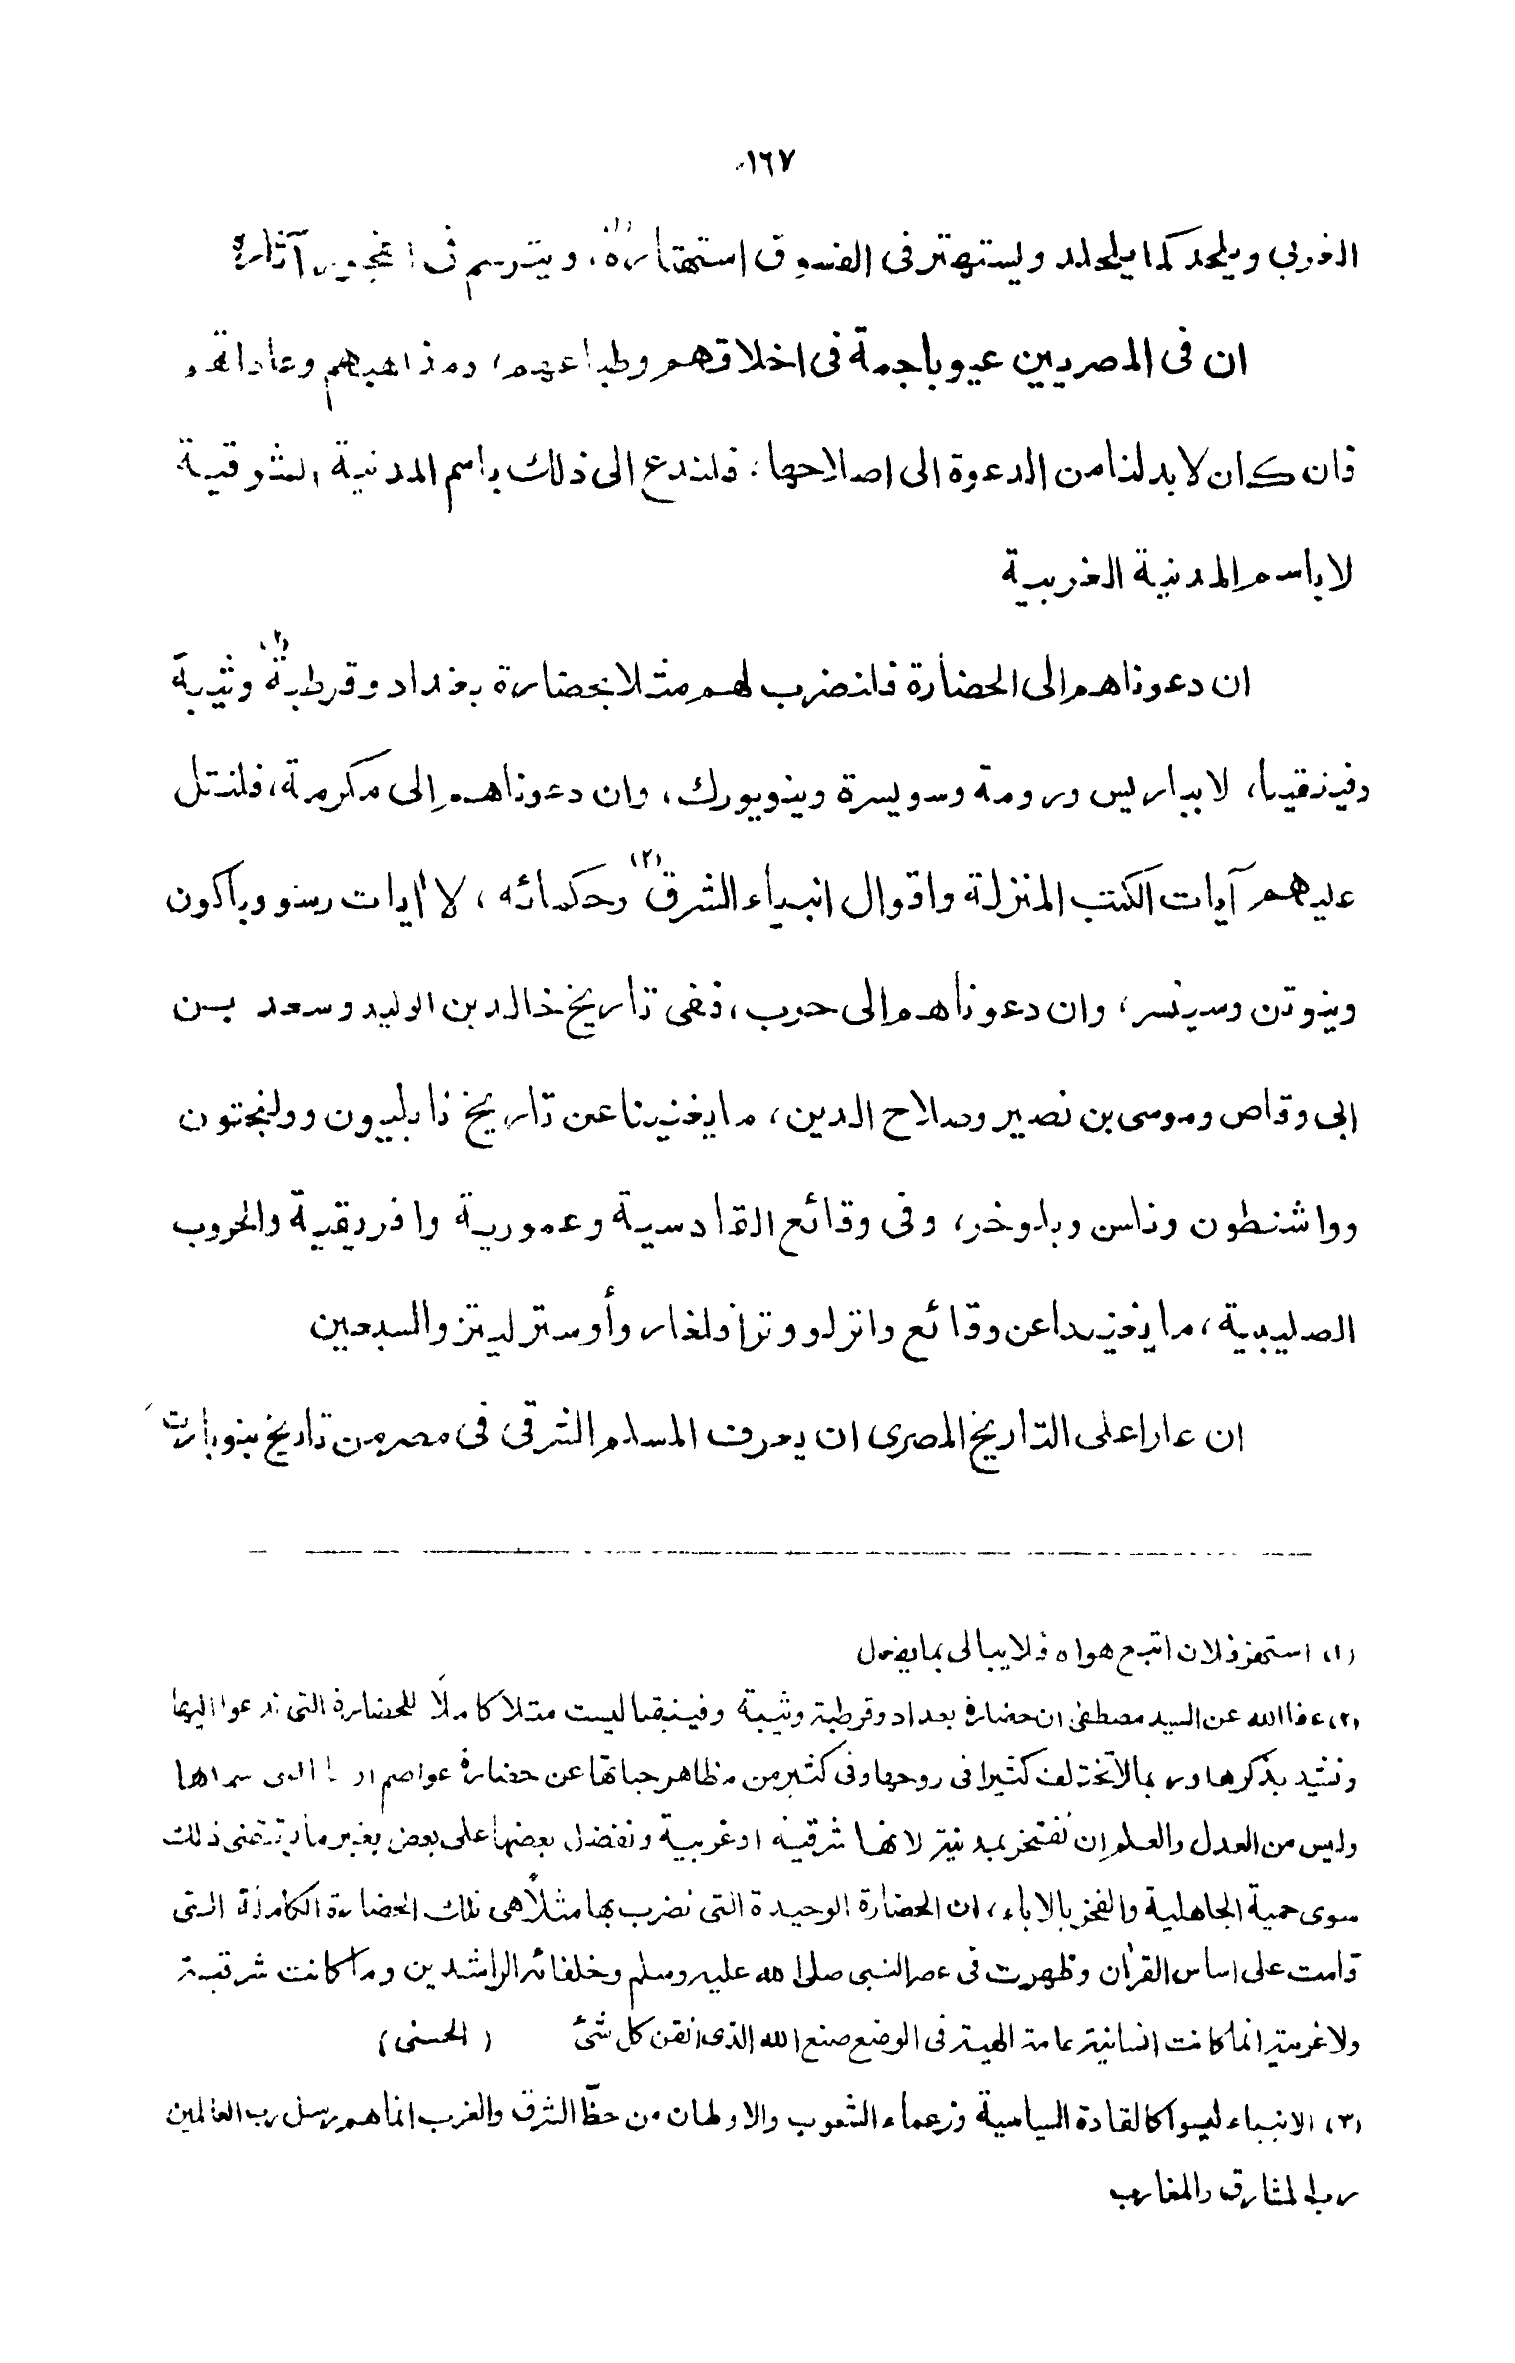 ١٦٧
الغربي ويلحد كما يلحد ويستهتر فى الفسوق استهتاره(١)، ويترسم فى الفجور آثاره
ان فى المصريين عيوبا جمة فى اخلاقهم وطباعهم، ومذاهبهم وعاداتهم
فان كان لا بد لنا من الدعوة الى اصلاحها، فلندع الى ذلك باسم المدنية الشرقية
لا باسم المدنية الغربية
ان دعوناهم الى الحضارة فلنضرب لهم مثلا بحضارة بغداد وقرطبة(٢) وثيبة
وفينقيا، لا بباريس ورومة وسويسرة ونيويورك، وان دعوناهم الى مكرمة، فلنتل
عليهم آيات الكتب المنزلة واقوال انبياء الشرق(٣) وحكمائه، لا آيات رسو وباكون
ونيوتن وسبنسر، وان دعوناهم الى حرب، ففى تاريخ خالد بن الوليد وسعد بن
ابى وقاص وموسى بن نصير وصلاح الدين، ما يغنينا عن تاريخ نابليون وولنجتون
وواشنطون وناسن وبلوخر، وفى وقائع القادسية وعمورية وافريقية والحروب
الصليبية، ما يغنينا عن وقائع واترلو وترافلغار وأوسترليتز والسبعين
ان عارا على التاريخ المصرى ان يعرف المسلم الشرقى فى مصر من تاريخ بونابارت
(١) استهتر فلان اتبع هواه فلا يبالى بما يفعل
(٢) عفا الله عن السيد مصطفى ان حضارة بغداد وقرطبة وثيبة وفينيقيا ليست مثلا كاملا للحضارة التى ندعوا اليها
ونشيد بذكرها وربما لا تختلف كثيرا فى روحها وفى كثير من مظاهر حياتها عن حضارة عواصم التى سماها
وليس من العدل والعلم ان نفتخر بمدنية لانها شرقية او غربية ونفضل بعضها على بعض بغير ما يقتضى ذلك
سوى حمية الجاهلية والفخر بالاباء، ان الحضارة الوحيدة التى نضرب بها مثلاً هى تلك الحضارة الكاملة التى
قامت على اساس القرآن وظهرت فى عصر النبى صلى الله عليه وسلم وخلفائه الراشدين وما كانت شرقية
ولا غربية انما كانت انسانية عامة الهية فى الوضع صنع الله الذى اتقن كل شئ (الحسنى)
(٣) الانبياء ليسوا كالقادة السياسية وزعماء الشعوب والاوطان من حظّ الشرق والغرب انما هم رسل رب العالمين
رب المشارق والمغارب